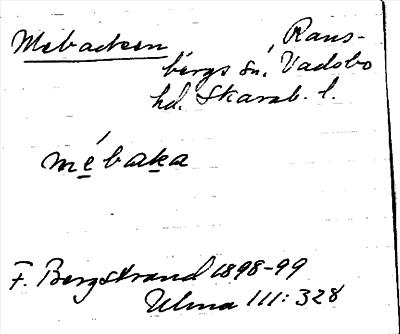 Mebacken
i Rans-
bergs sn, Vadsbo
hd. Skarab. l.
mébaka
F. Bergstrand 1898-99
Ulma 111:328